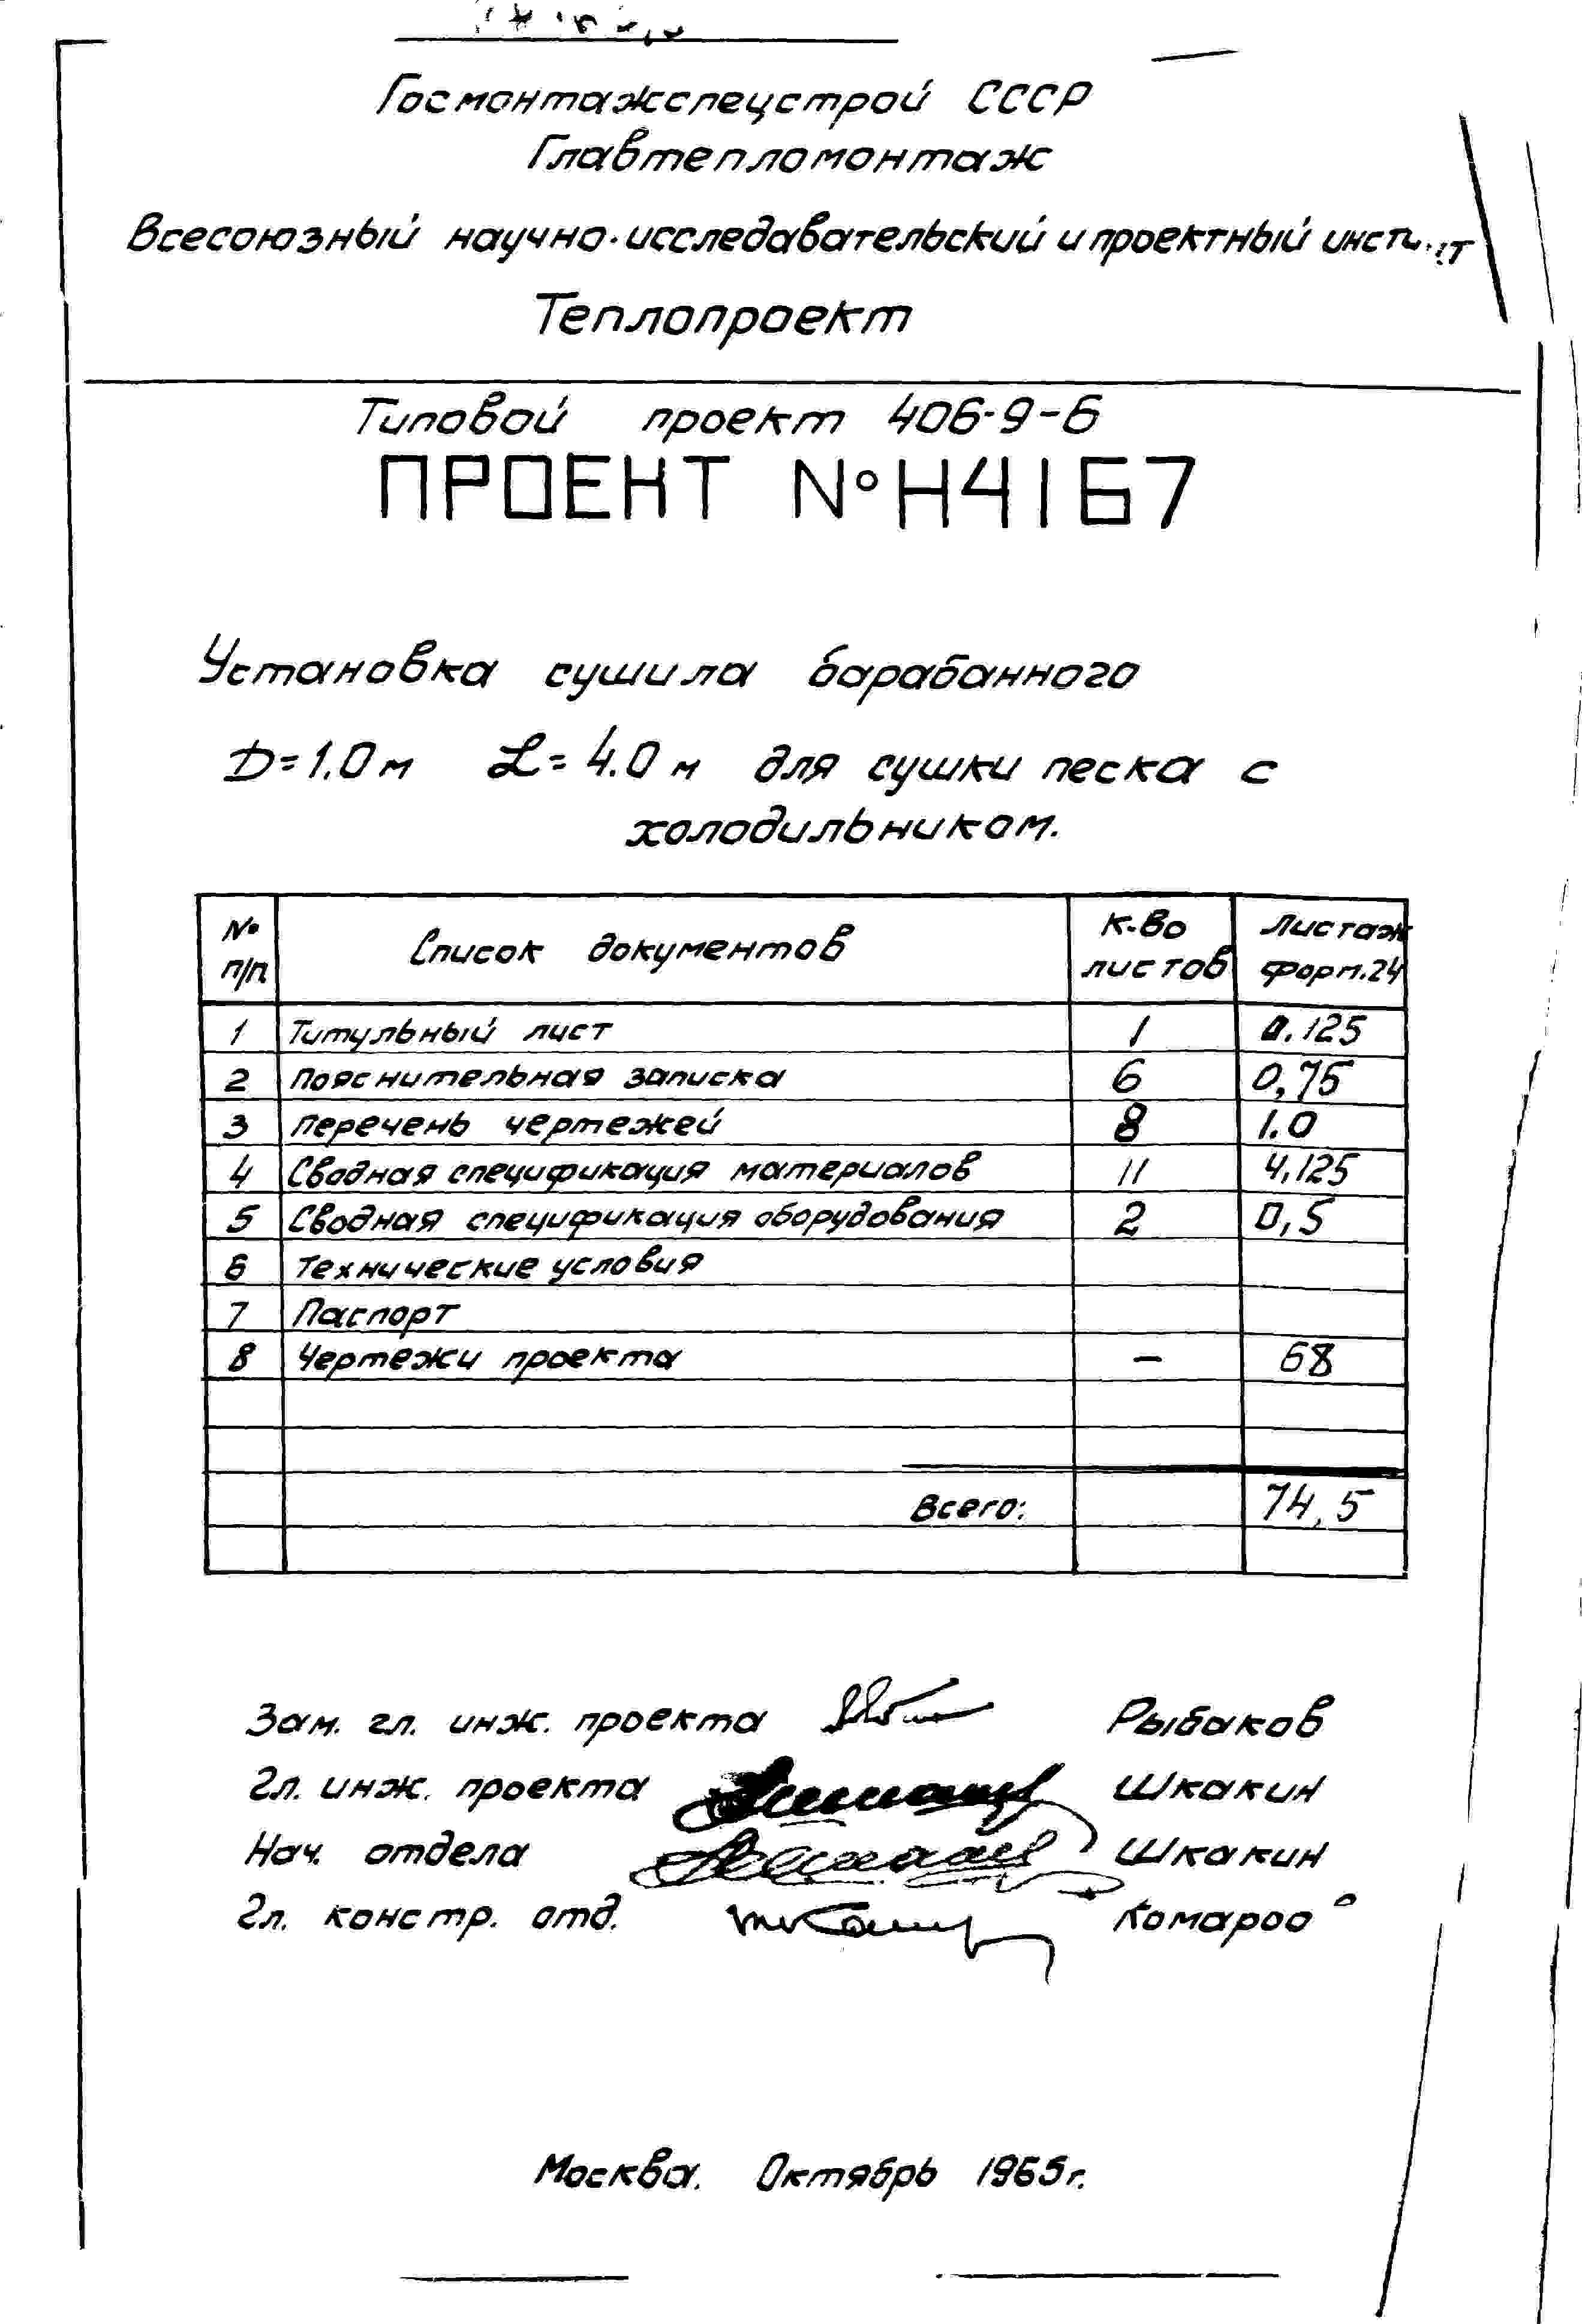 Госмонтажспецстрой СССР
Главтепломонтаж
Всесоюзный научно-исследавательский и проектный
Теплопроект
Типовой проект 406-9-6
ПРОЕКТ №Н4167
Установка сушила барабанного
D=1.0м L=4.0м для сушки песка с
холодильником.
№ п/п Список документов К-во листов Листаж форм.24
1 Титульный лист 1 0.125
2 Пояснительная записка 6 0,75
3 Перечень чертежей 8 1.0
4 Сводная спецификация материалов 11 4,125
5 Сводная спецификация оборудования 2 0,5
6 Технические условия
7 Паспорт
8 Чертежи проекта – 68
Всего: 74,5
Зам. гл. инж. проекта Рыбаков
Гл. инж. проекта Шкакин
Нач. отдела Шкакин
Гл. констр. отд. Комаров
Москва. Октябрь 1965г.